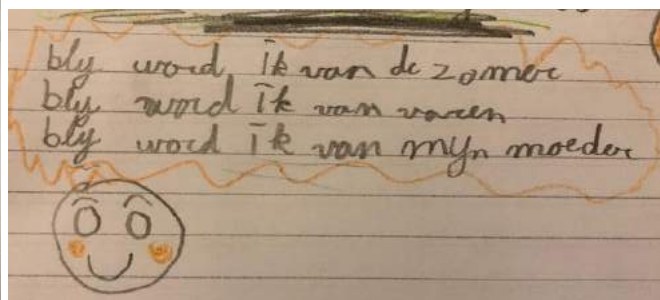 bly word ik van de zomer
bly word ik van varen
bly word ik van myn moeder